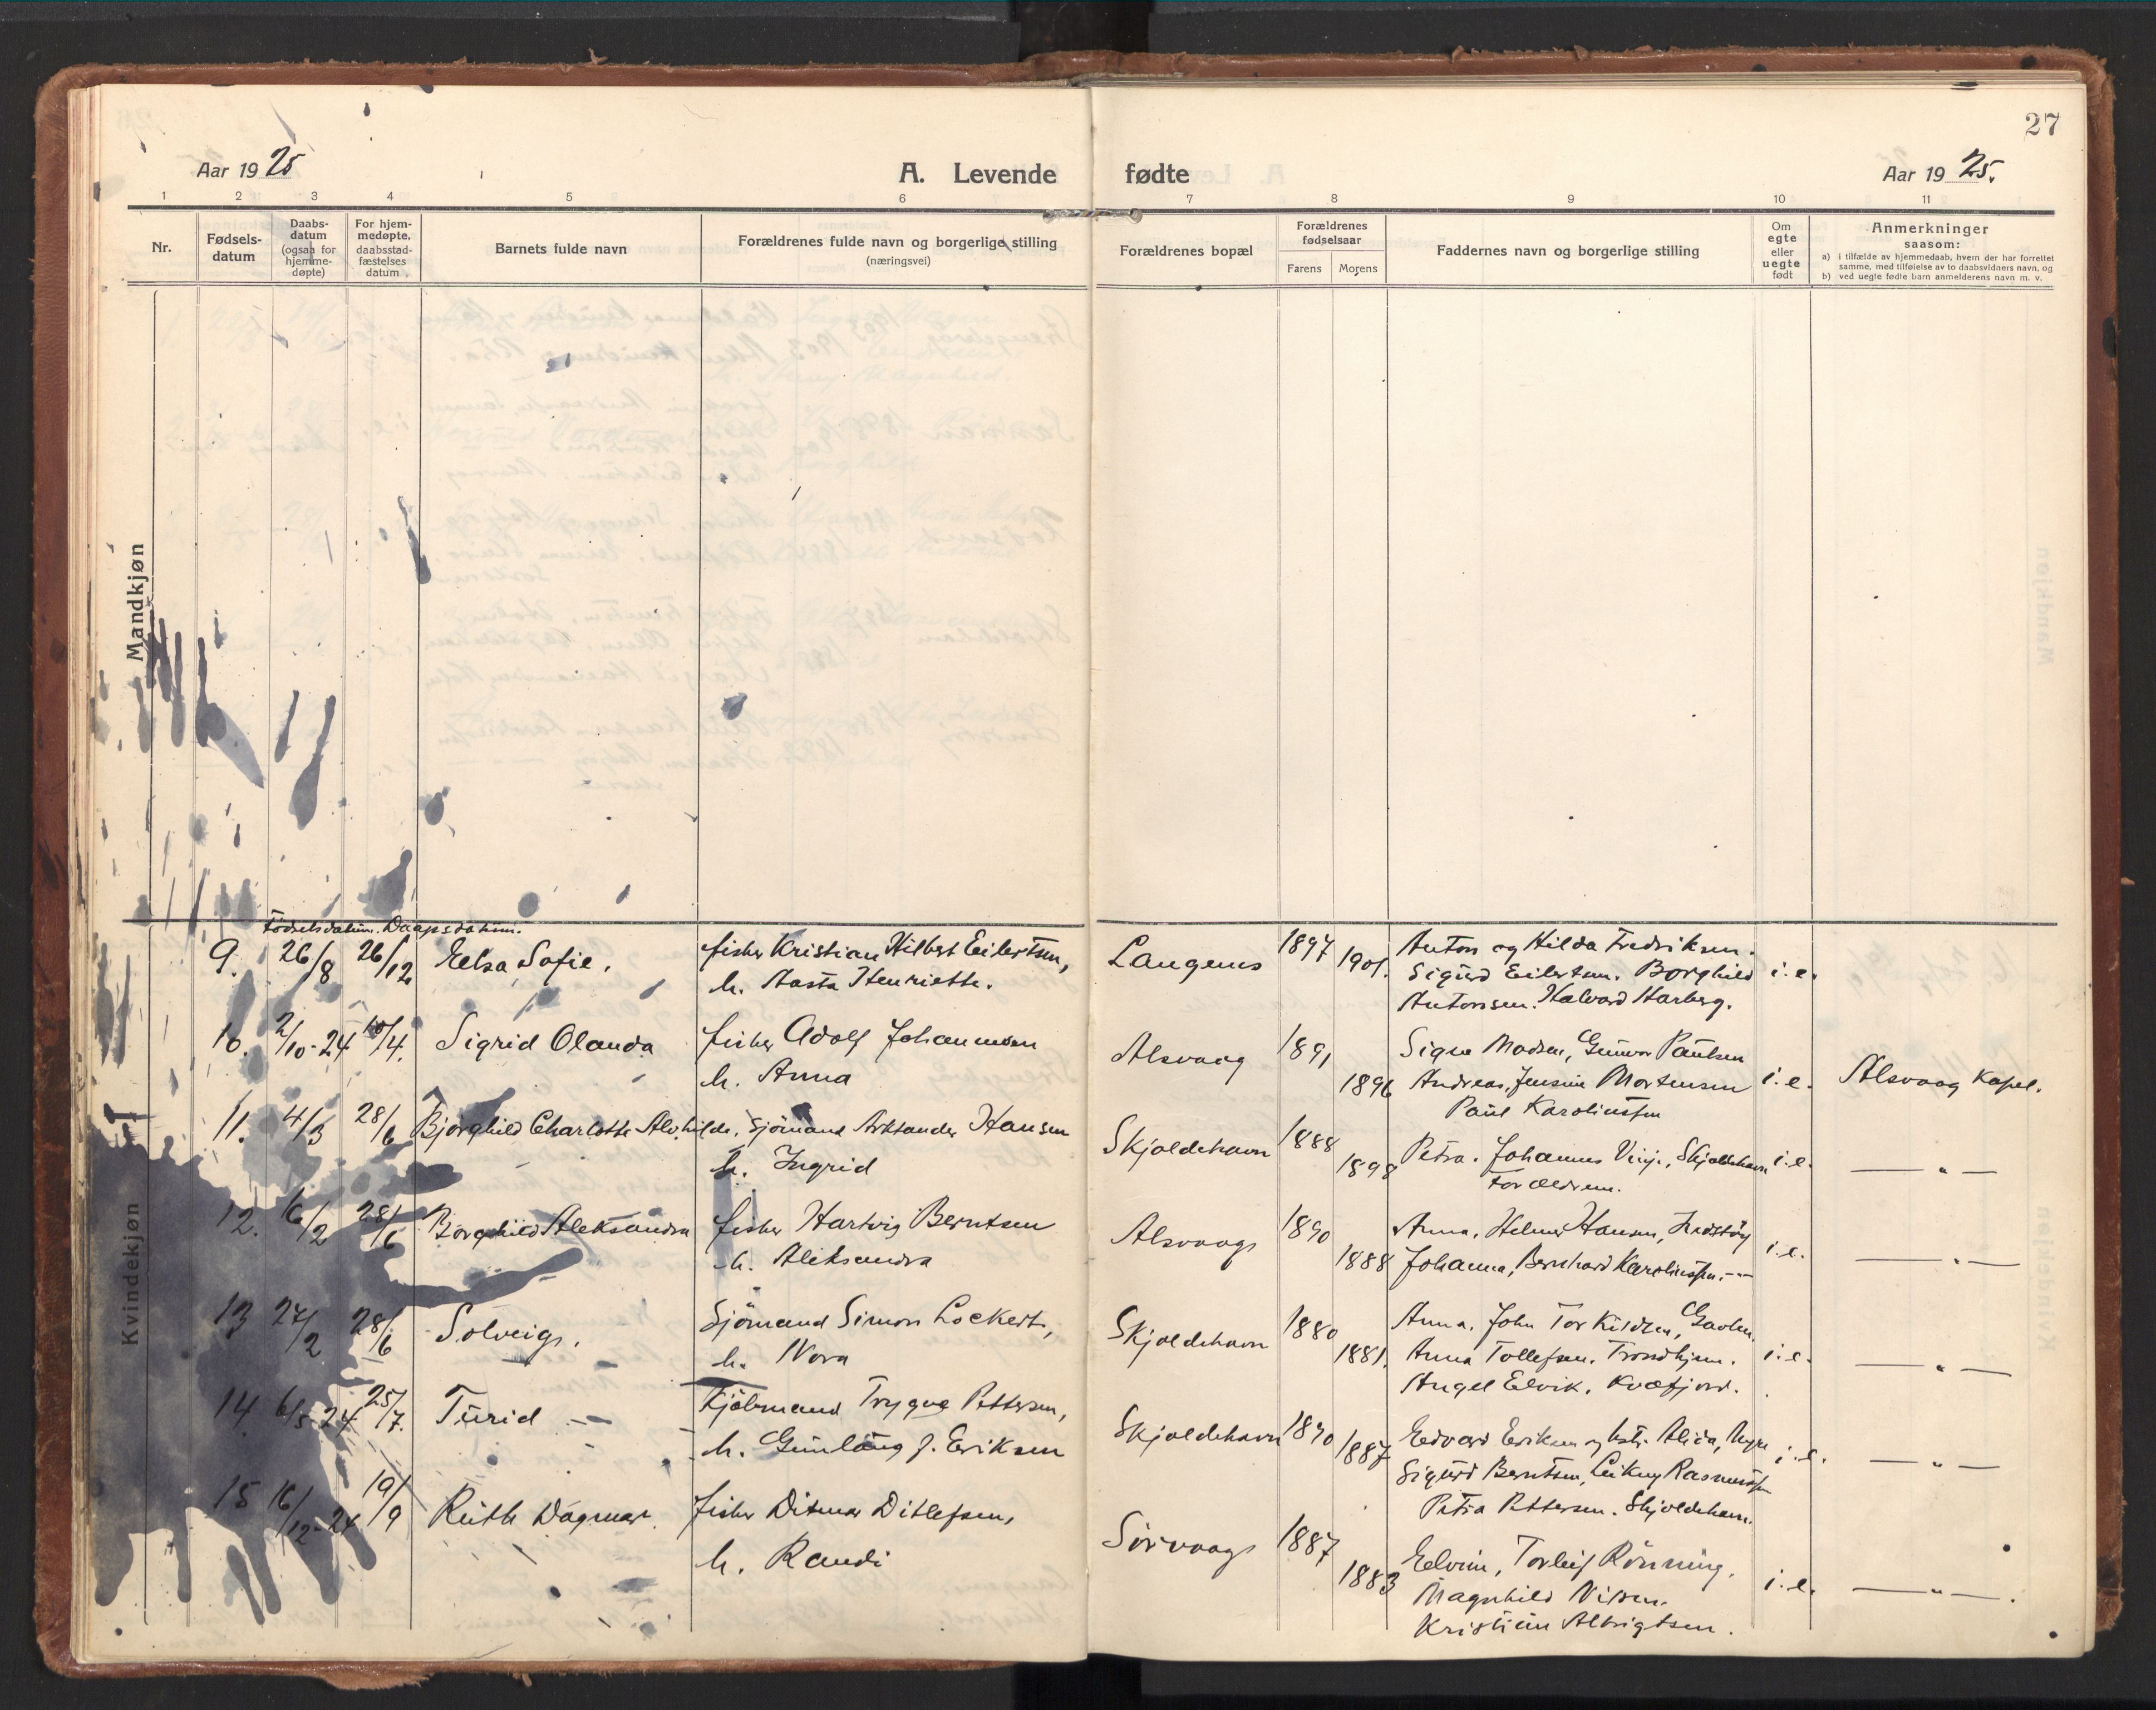 27
Aar 1925
A. Levende fødte
Aar 1925.
1 2 3 4 5 6 7 8 9 10 11
Nr.
Fødsels-
datum
Daabs-
datum
(ogsaa for
hjemme-
døpte)
For hjem-
medøpte,
daabsstad-
fæstelses
datum
Barnets fulde navn
Forældrenes fulde navn og borgerlige stilling
(næringsvei)
Forældrenes bopæl
Forældrenes
fødselsaar
Farens Morens
Faddernes navn og borgerlige stilling
Om
egte
eller
uegte
født
Anmerkninger
saasom:
a) i tilfælde av hjemmedaab, hvem der har forrettet
samme, med tilføielse av to daabsvidners navn, og
b) ved uegte fødte barn anmelderens navn m. v.
Mandkjøn
Kvindekjøn
Fødselsdatum. Daapsdatum.
9. 26/8 26/12 Elsa Sofie. fisker Kristian Hilbert Eilertsen, Langenes 1897 1901. Anton og Hilda Fredriksen.
h. Aasta Henriette. Sigurd Eilertsen. Borghild i.e.
Antonsen. Halvard Harberg.
10. 2/10-24 10/4. Sigrid Olanda fisker Adolf Johannesen Alsvaag 1891 Signe Madsen, Gunvor Paulsen
h. Anna 1896 Andreas, Jensine Mortensen i.e. Alsvaag Kapel.
Paul Karolinssen
11. 4/3 28/6 Bjørghild Charlotte Alvhilde. Sjömand Arktander Hansen Skjoldehavn 1888
h. Ingrid 1898 Petra. Johannes Vinje, Skjoldehavn i.e. — " —
Forældrene.
12. 16/2 28/6 Borghild Aleksandra fisker Hartvig Berntsen Alsvaag 1890 Anna, Helmer Hansen,
h. Aleksandra 1888 Johanna, Bernhard Karolinssen. -- i.e. — " —
13 27/2 28/6 Solveig. Sjömand Simon Lockert, Skjoldehavn 1880 Anna. John Torkildsen,
h. Nora 1881. Anna Tollefsen. Trondhjem. i.e. — " —
Angel Elvik. Kvæfjord.
14. 6/5-24 25/7. Turid -- Kjøbmand Trygve Pettersen, Skjoldehavn 1890 1887 Edvard Eriksen og hstr. Alida, Myre i.e. — " —
h. Gunlaug f. Eriksen Sigurd Berntsen, Leikny Rasmussen
Petra Pettersen. Skjoldehavn.
15 16/12-24 19/9 Ruth Dagmar. fisker Ditmar Ditlefsen, Sörvaag 1887
h. Randi 1883 Elvine, Torleif Rönning. i.e. — " — .
Magnhild Nilsen.
Kristian Albrigtsen.